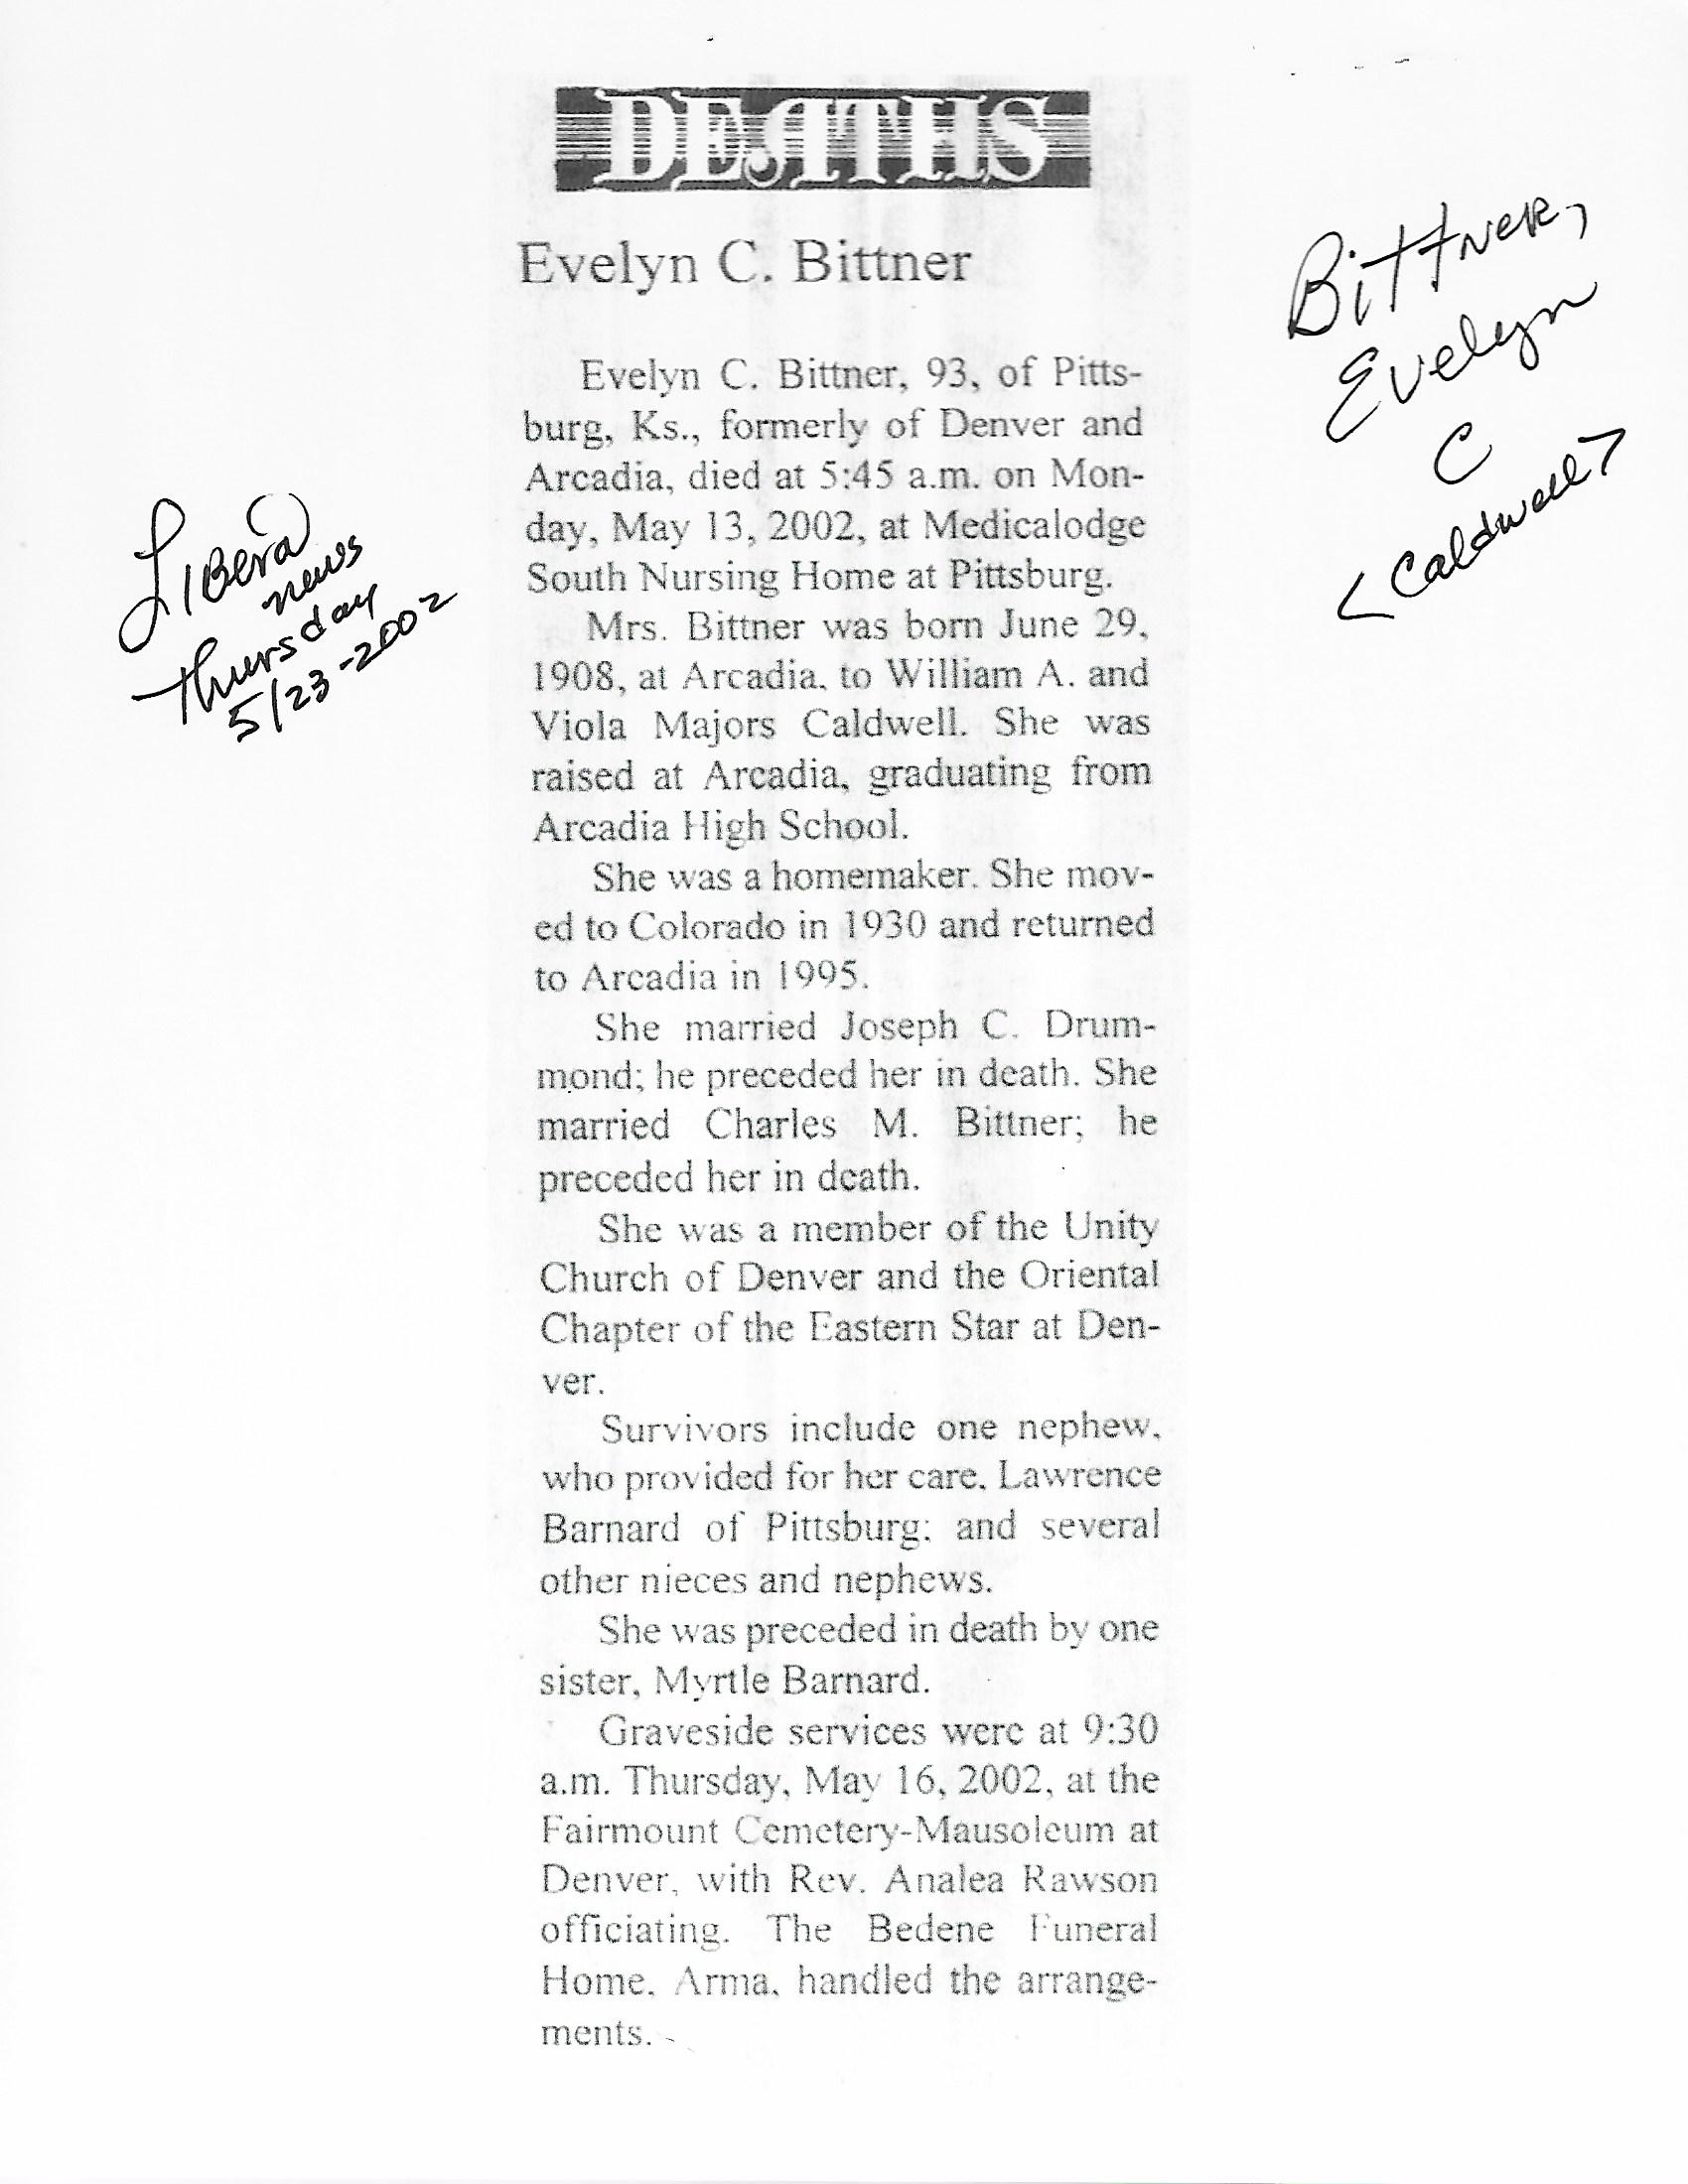 DEATHS
Evelyn C. Bittner
Evelyn C. Bittner, 93, of Pitts-
burg, Ks., formerly of Denver and
Arcadia, died at 5:45 a.m. on Mon-
day, May 13, 2002, at Medicalodge
South Nursing Home at Pittsburg.
Mrs. Bittner was born June 29,
1908, at Arcadia, to William A. and
Viola Majors Caldwell. She was
raised at Arcadia, graduating from
Arcadia High School.
She was a homemaker. She mov-
ed to Colorado in 1930 and returned
to Arcadia in 1995.
She married Joseph C. Drum-
mond; he preceded her in death. She
married Charles M. Bittner; he
preceded her in death.
She was a member of the Unity
Church of Denver and the Oriental
Chapter of the Eastern Star at Den-
ver.
Survivors include one nephew,
who provided for her care, Lawrence
Barnard of Pittsburg; and several
other nieces and nephews.
She was preceded in death by one
sister, Myrtle Barnard.
Graveside services were at 9:30
a.m. Thursday, May 16, 2002, at the
Fairmount Cemetery-Mausoleum at
Denver, with Rev. Analea Rawson
officiating. The Bedene Funeral
Home, Arma, handled the arrange-
ments.
Liberal
news
Thursday
5/23-2002
Bittner,
Evelyn
C
<Caldwell>